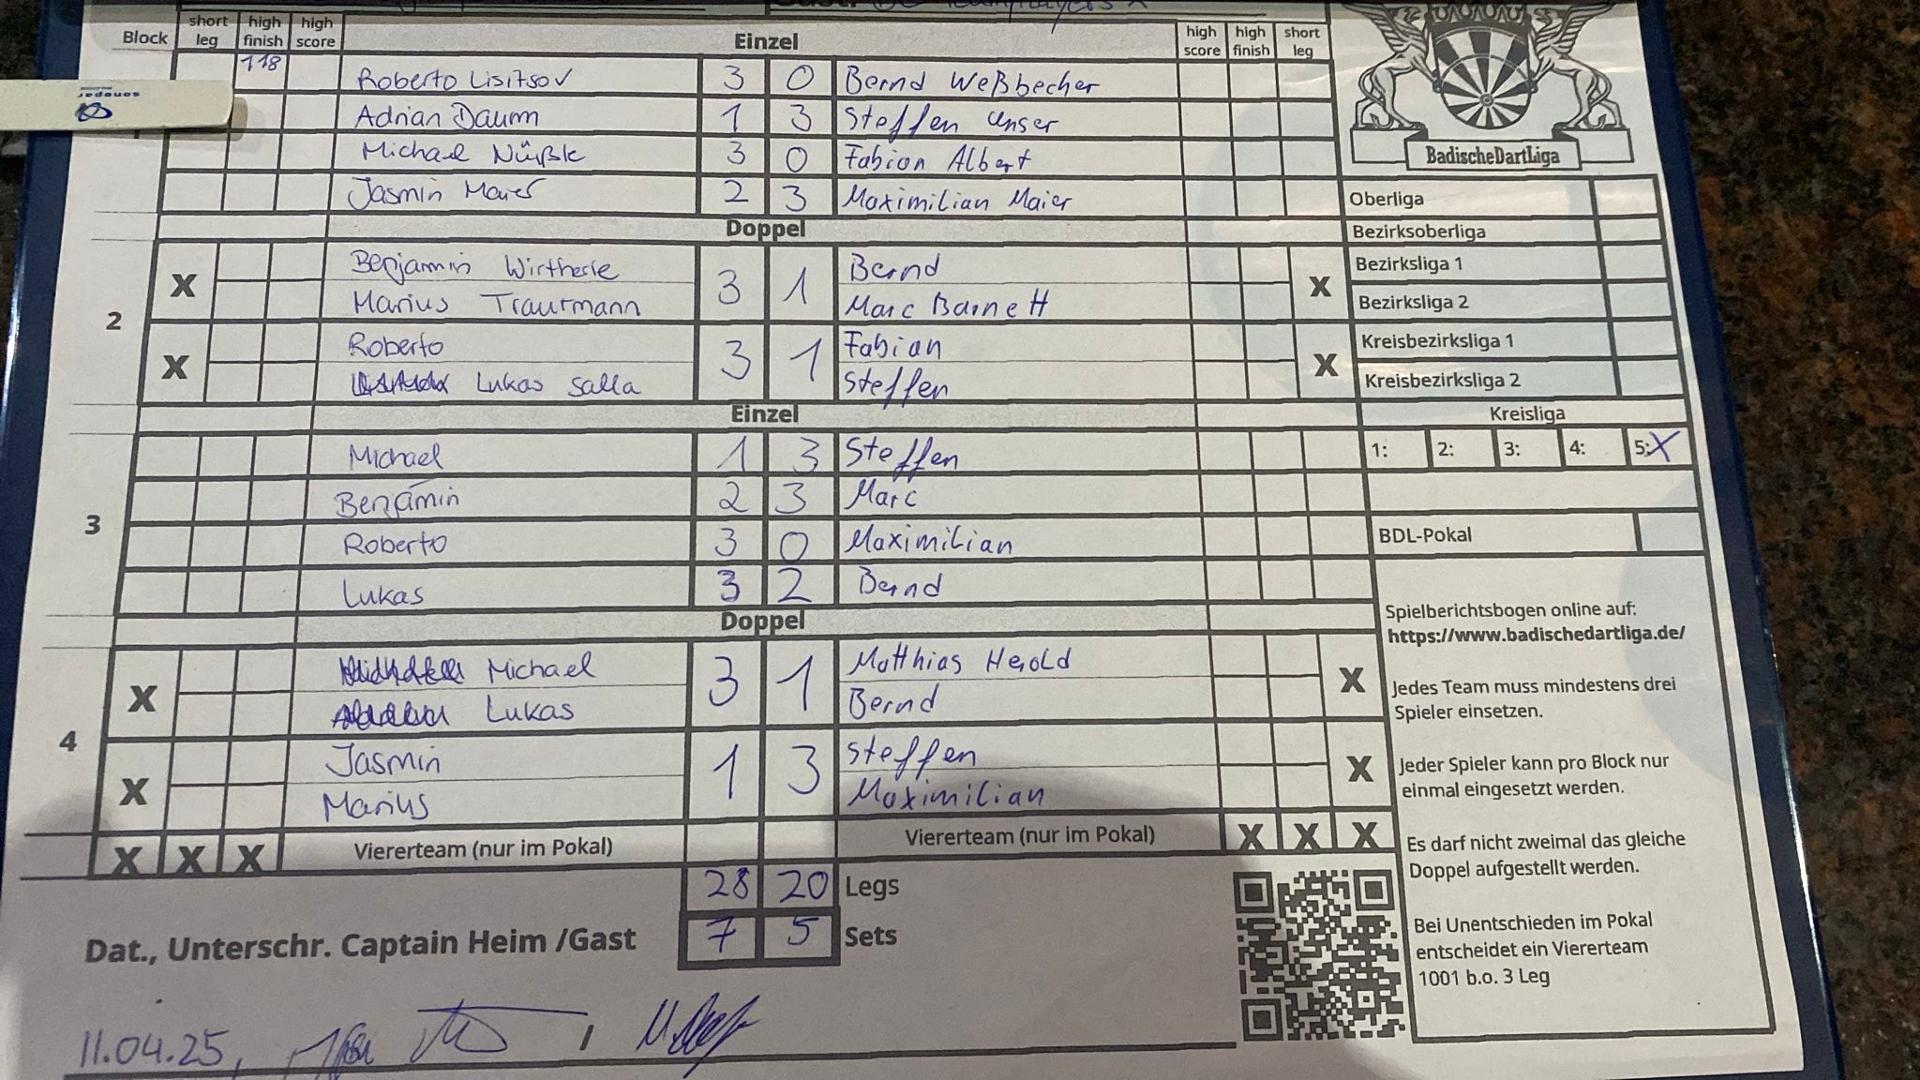 Block short leg high finish high score Einzel high score high finish short leg
118 Roberto Lisitsov 3 0 Bernd Weßbecher
Adrian Daum 1 3 Steffen Unser
Michael Nüßle 3 0 Fabian Albert
Jasmin Maier 2 3 Maximilian Maier
Doppel
2
X Benjamin Wirtherle 3 1 Bernd X
Marius Trautmann Marc Barnett
X Roberto 3 1 Fabian X
Lukas Salla Steffen
Einzel
3
Michael 1 3 Steffen
Benjamin 2 3 Marc
Roberto 3 0 Maximilian
Lukas 3 2 Bernd
Doppel
4
X Michael 3 1 Matthias Herold X
Lukas Bernd
X Jasmin 1 3 Steffen X
Marius Maximilian
X X X Viererteam (nur im Pokal) Viererteam (nur im Pokal) X X X
28 20 Legs
7 5 Sets
Dat., Unterschr. Captain Heim /Gast
11.04.25, /
BadischeDartLiga
Oberliga
Bezirksoberliga
Bezirksliga 1
Bezirksliga 2
Kreisbezirksliga 1
Kreisbezirksliga 2
Kreisliga
1: 2: 3: 4: 5: X
BDL-Pokal
Spielberichtsbogen online auf:
https://www.badischedartliga.de/
Jedes Team muss mindestens drei
Spieler einsetzen.
Jeder Spieler kann pro Block nur
einmal eingesetzt werden.
Es darf nicht zweimal das gleiche
Doppel aufgestellt werden.
Bei Unentschieden im Pokal
entscheidet ein Viererteam
1001 b.o. 3 Leg